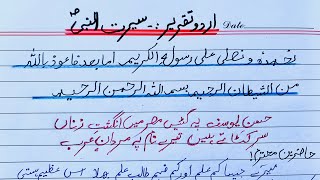 اردو تقریر :- سیرت النبیؐ Date
نحمدہ و نصلی علی رسولہ الکریم اما بعد فاعوذ باللہ
من الشیطان الرجیم بسم اللہ الرحمن الرحیم
حسن یوسف پہ کٹیں مصر میں انگشتِ زناں
سر کٹاتے ہیں تیرے نام پہ مردانِ عرب
حاضرین محترم!
میرے جیسا کم علم اور کم فہم طالب علم بھلا اس عظیم ہستی